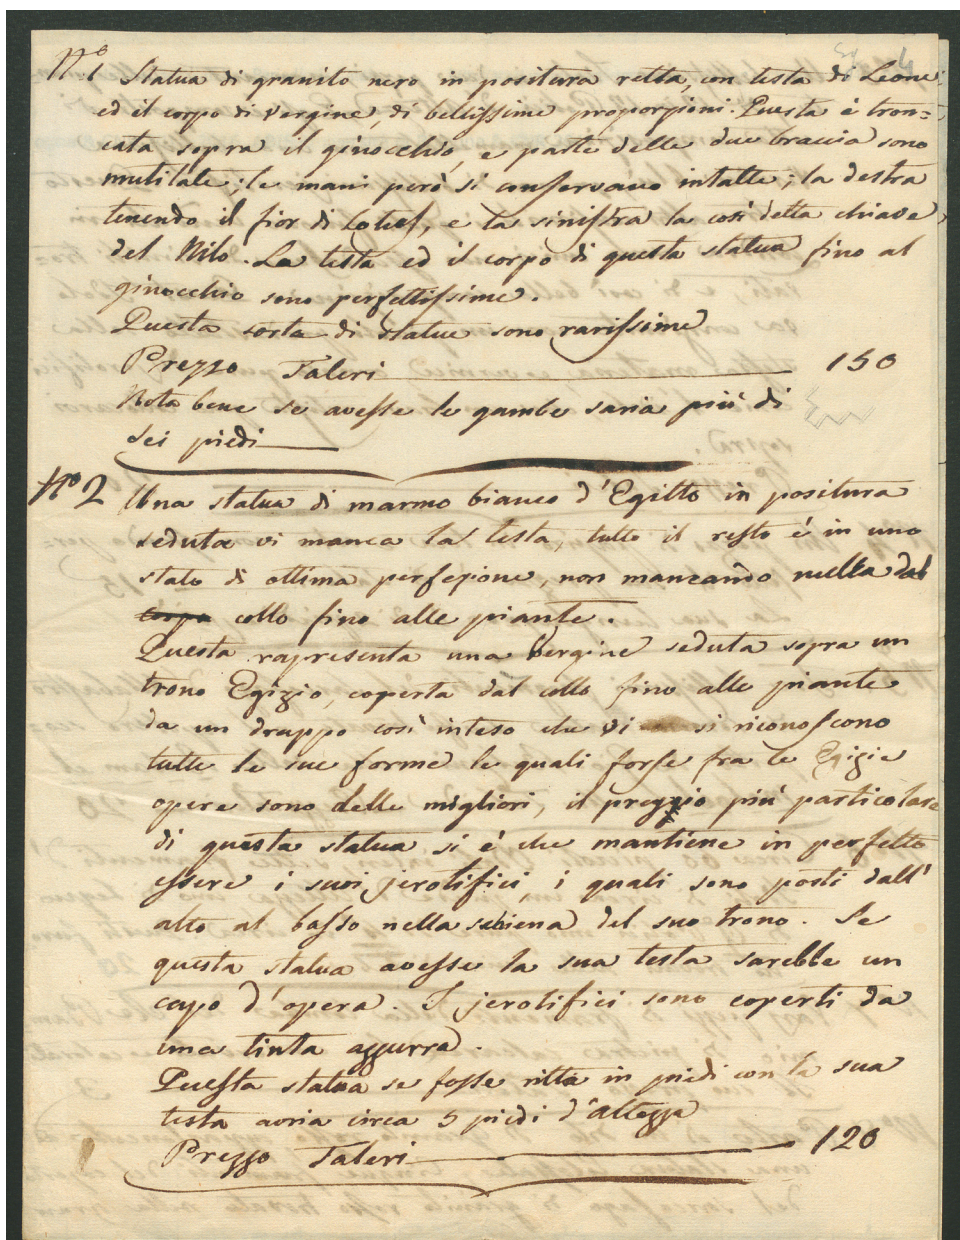 4
N.º 1 Statua di granito nero in positura retta, con testa di Leone
ed il corpo di vergine, di bellissime proporzioni. Questa è tron=
cata sopra il ginocchio, e parte delle due braccia sono
mutilate; le mani però si conservano intatte; la destra
tenendo il fior di Lotus, e la sinistra la così detta chiave
del Nilo. La testa ed il corpo di questa statua fino al
ginocchio sono perfettissime.
Questa sorta di statue sono rarissime
Prezzo Taleri 150
Nota bene se avesse le gambe saria più di
sei piedi
Nº 2 Una statua di marmo bianco d'Egitto in positura
seduta vi manca la testa, tutto il resto è in uno
stato di ottima perfezione, non mancando nulla dal
corpo collo fino alle piante.
Questa rapresenta una vergine seduta sopra un
trono Egizio, coperta dal collo fino alle piante
da un drappo così inteso che vi si riconoscono
tutte le sue forme le quali forse fra le Egizie
opere sono delle migliori, il preggio più particolare
di questa statua si è che mantiene in perfetto
essere i suoi jerolifici, i quali sono posti dall'
alto al basso nella schiena del suo trono. Se
questa statua avesse la sua testa sarebbe un
capo d'opera. I jerolifici sono coperti da
una tinta azzurra.
Questa statua se fosse ritta in piedi con la sua
testa avria circa 5 piedi d'altezza
Prezzo Taleri 120